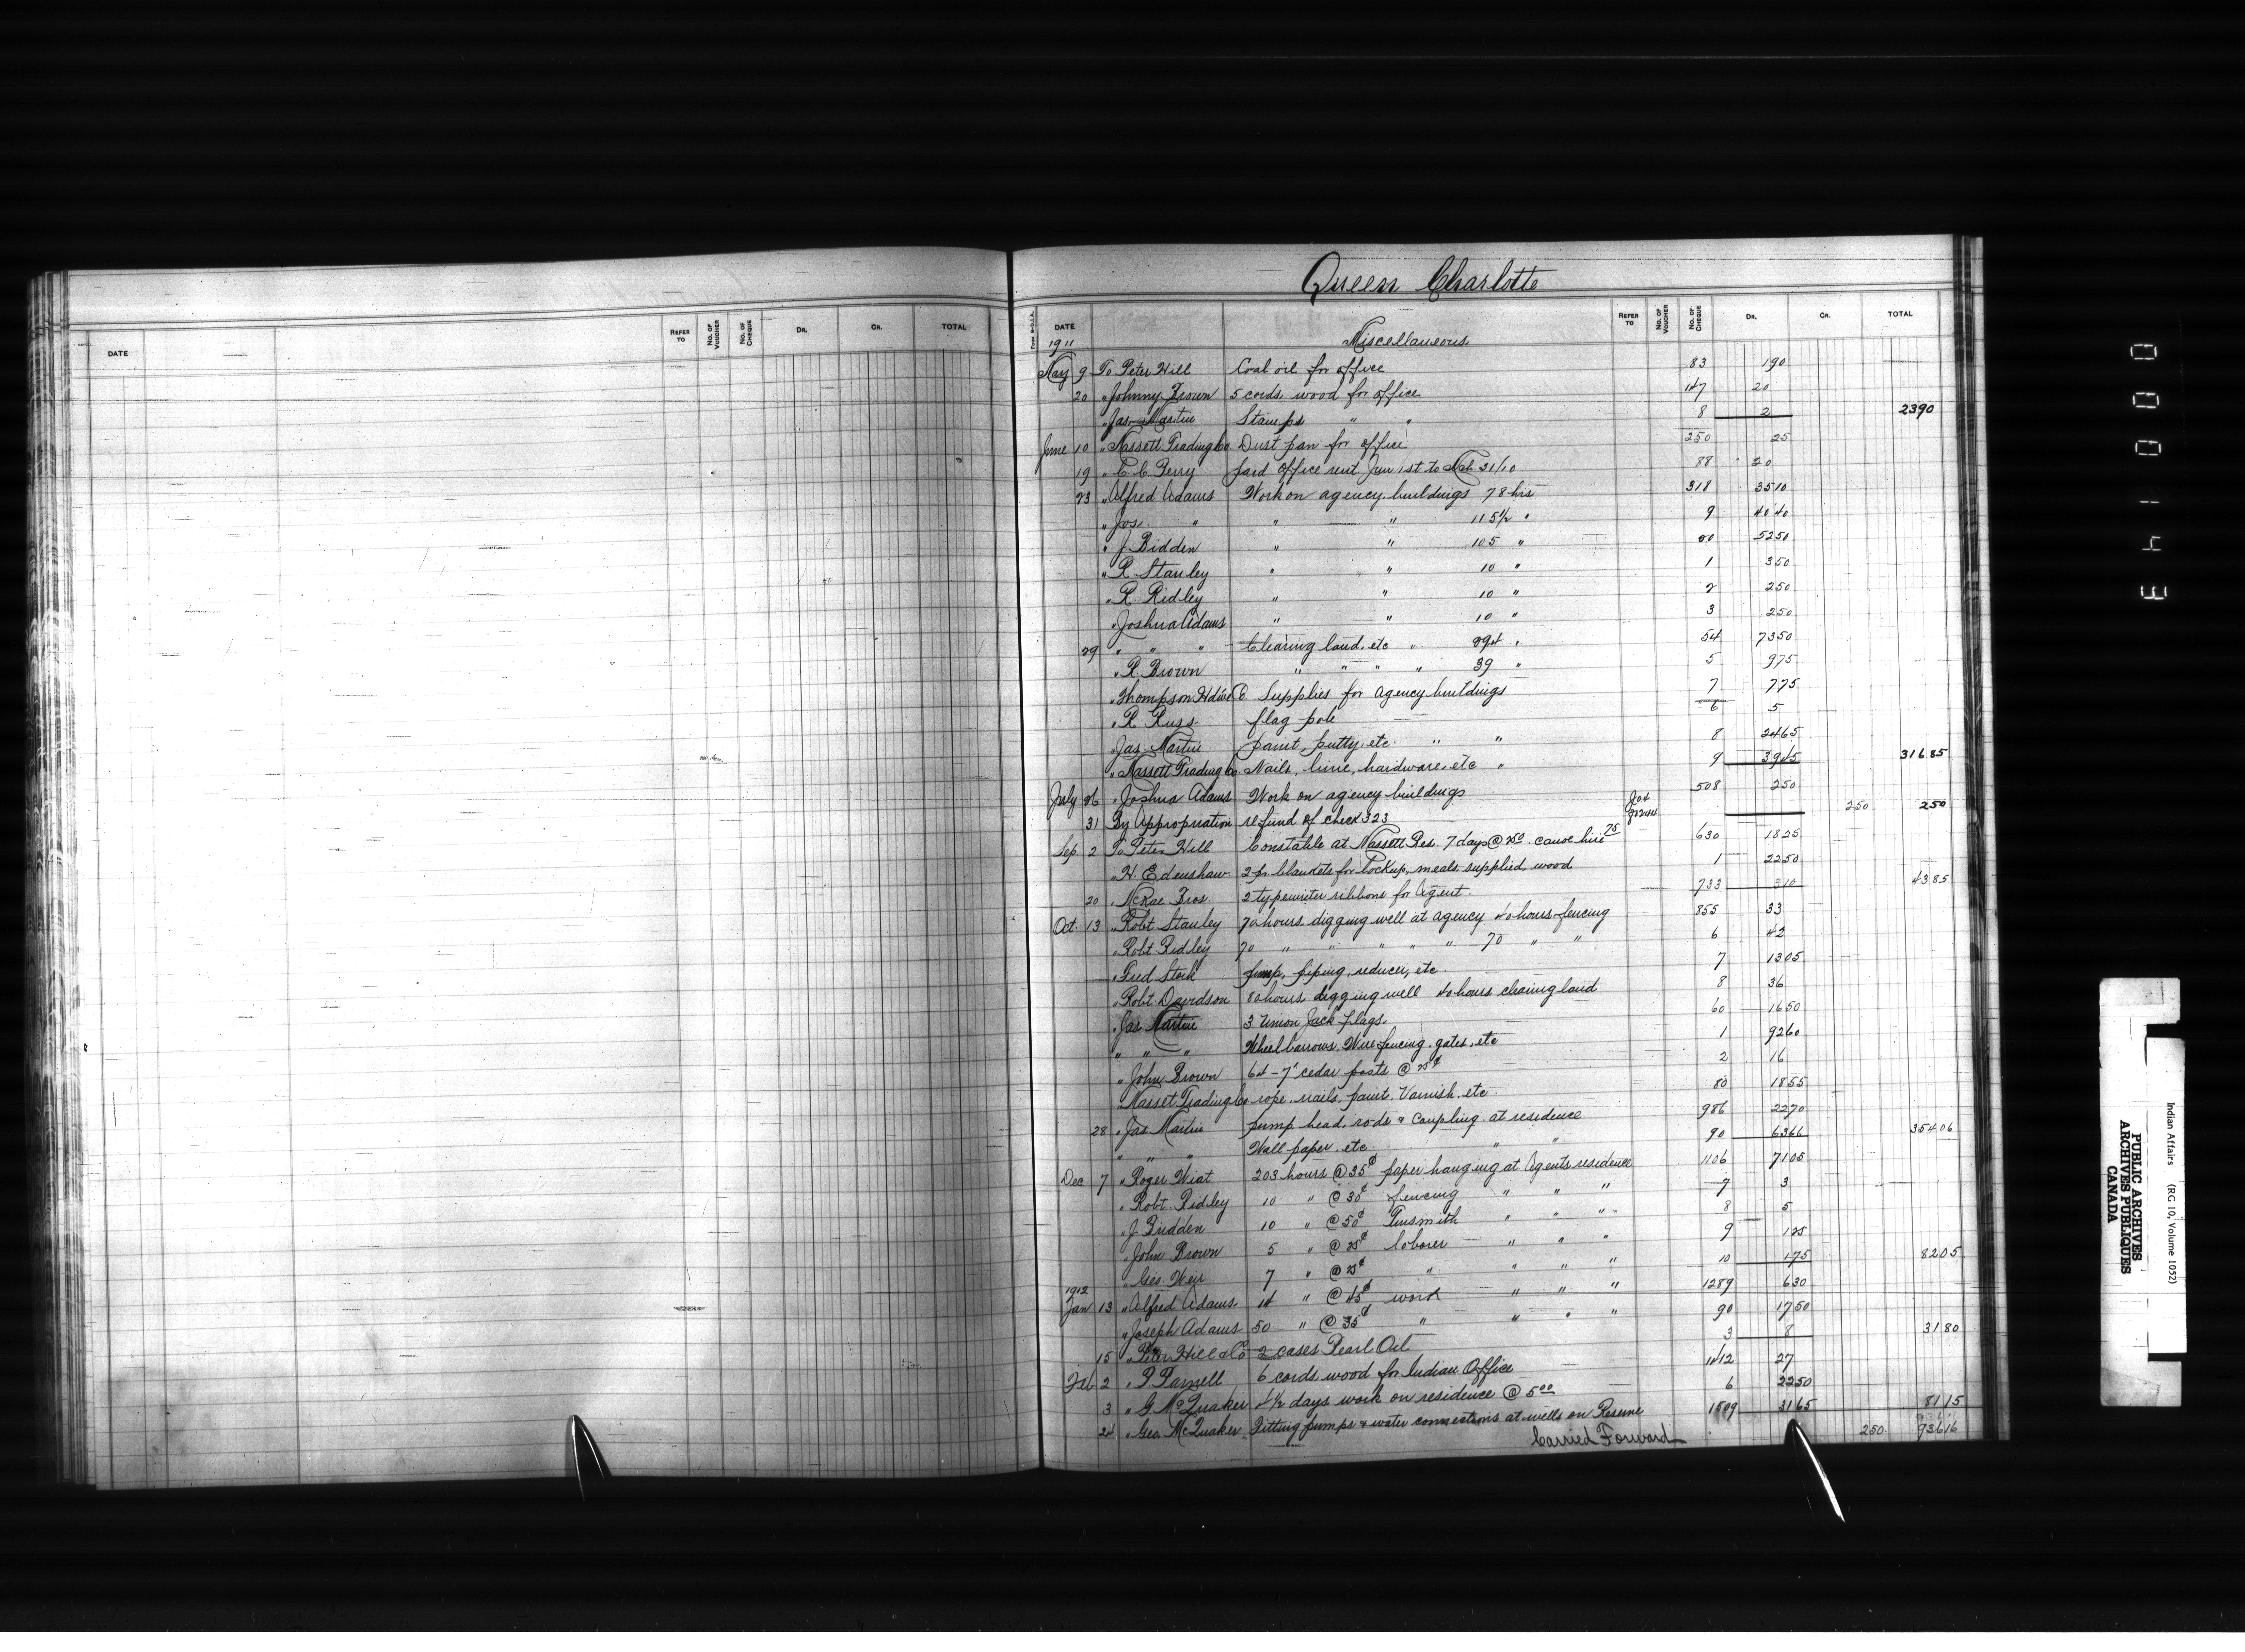 DATE REFER TO NO. OF VOUCHER NO. OF CHEQUE DR. CR. TOTAL
Queen Charlotte
Form B-D.I.A. DATE REFER TO NO. OF VOUCHER NO. OF CHEQUE DR. CR. TOTAL
1911 Miscellaneous
May 9 To Peter Hill Coal oil for office 83 1 90
20 " Johnny Brown 5 cords wood for office 147 20
" Jas. Martin Stamps " " 8 2 23 90
June 10 " Massett Trading Co. Dust pan for office 250 25
19 " C. C. Perry paid office rent Jan 1st to 31/10 88 20
23 " Alfred Adams Work on agency buildings 78 hrs 318 35 10
" Jos. " " " 115 1/2 " 9 40 40
" J. Bidden " " 105 " 20 52 50
" R. Stanley " " 10 " 1 3 50
" R. Ridley " " 10 " 2 2 50
" Joshua Adams " " 10 " 3 2 50
29 " " " Clearing land, etc " 294 " 54 73 50
" R. Brown " " " " 39 " 5 9 75
" Thompson Hdwe Co. Supplies for Agency buildings 7 7 75
" R. Russ flag pole 6 5
" Jas. Martin paint, putty, etc. " " 8 24 65
" Massett Trading Co Nails, lime, hardware, etc " 9 39 45 316.85
July 26 " Joshua Adams Work on agency buildings 508 2 50
31 By Appropriation refund of check 323 2 50 2 50
Sep. 2 To Peter Hill Constable at Massett Res. 7 days @ 2.50 canoe hire 75 630 18 25
" H. Edenshaw 2 pr. blankets for lockup, meals supplied, wood 1 22 50
20 " McRae Bros. 2 typewriter ribbons for Agent. 733 3 10 43 85
Oct. 13 " Robt Stanley 70 hours digging well at agency. 40 hours fencing 855 33
" Robt Ridley 70 " " " " " 70 " " 6 42
" Fred Stork pump, piping, reducer, etc 7 13 05
" Robt Davidson 80 hours digging well 40 hours clearing land 8 36
" Jas Martin 3 Union Jack flags. 60 16 50
" " " Wheelbarrows, Wire fencing, gates, etc 1 92 60
" John Brown 64 - 7' cedar posts @ 25¢ 2 16
" Masset Trading Co rope, nails, paint, Varnish, etc 80 18 55
28 " Jas Martin pump head, rods & Coupling at residence 986 22 70
" " " Wall paper, etc. " " 90 63 66 354 06
Dec 7 " Roger Wiat 203 hours @ 35¢ paper hanging at Agents residence 1106 71 05
" Robt. Ridley 10 " @ 30¢ fencing " " " 7 3
" J. Bidden 10 " @ 50¢ Tinsmith " " " 8 5
" John Brown 5 " @ 25¢ laborer " " " 9 1 25
" Geo. Weir 7 " @ 25¢ " " " " 10 1 75 82 05
1912
Jan 13 " Alfred Adams. 14 " @ 45¢ work " " " 1289 6 30
" Joseph Adams 50 " @ 35¢ " " " " 90 17 50
15 " Peter Hill & Co 2 cases Pearl Oil 3 8 31 80
Feb 2 " P. Parnell 6 cords wood for Indian Office 1412 27
3 " G. McQuaker 4 1/2 days work on residence @ 5.00 6 22 50
24 " Geo. McQuaker Fitting pumps & water connections at wells on Reserve 1509 31 65 81 15
Carried Forward 2 50 936 16
000143
Indian Affairs (RG 10, Volume 1052)
PUBLIC ARCHIVES
ARCHIVES PUBLIQUES
CANADA